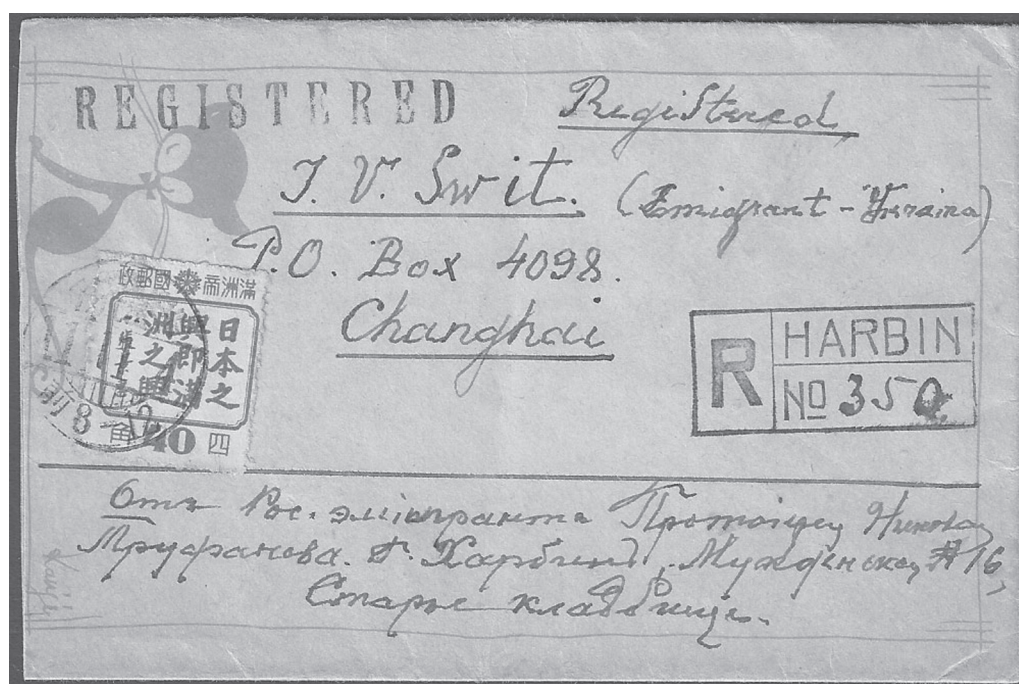 REGISTERED
Registered
J. V. Swit. (Emigrant - Ukraina)
P.O. Box 4098.
Changhai
政郵國 帝洲滿
日本之
興即滿
洲之興
角 40 四
前 8
R HARBIN
No 350
Отъ Рос. эмигранта Протоіерея
г. Харбинъ, Мукденская # 16,
Старое кладбище.